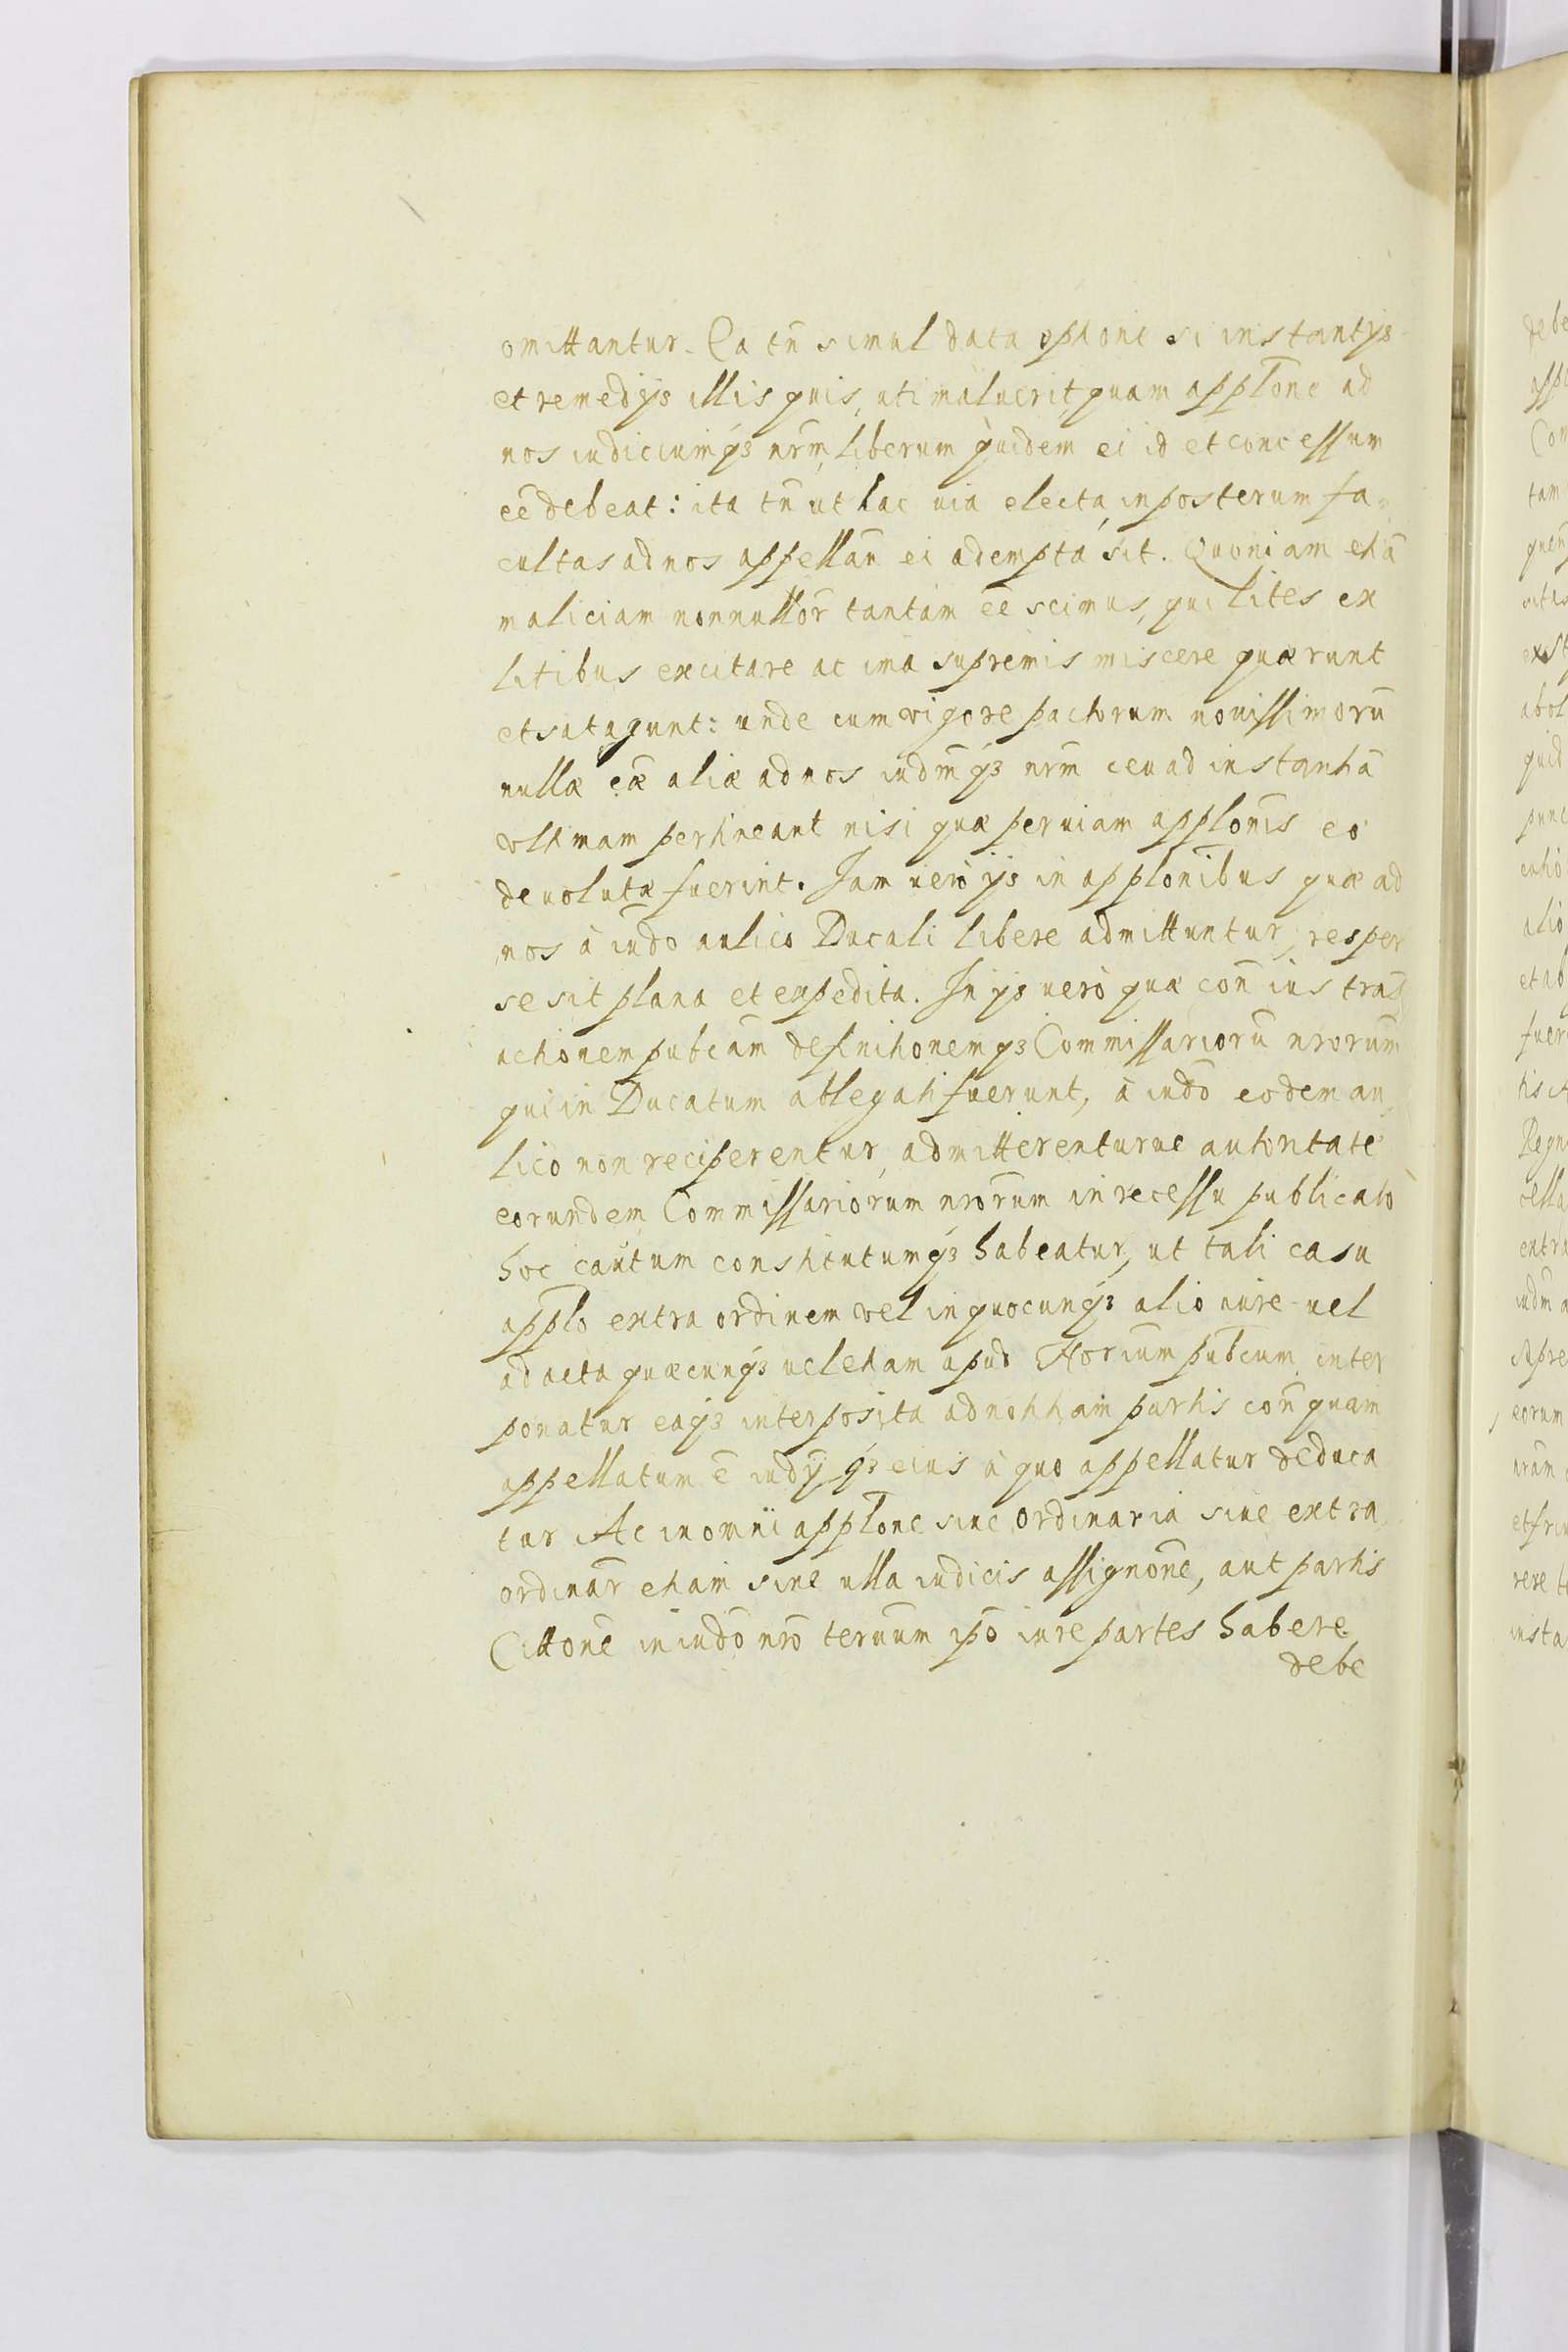 omittantur. Ea tñ simul data optione si instantijs
et remedijs illis quis, uti maluerit, quam applone ad
nos iudiciumq3 nrm̃, liberum quidem ei id et concessum
eẽ debeat: ita tñ ut hac uia electa, in posterum fa=
cultas ad nos appellan̄ ei adempta sit. Quoniam etiã
maliciam nonnullor̃ tantam eẽ scimus, qui lites ex
litibus excitare ac ima supremis miscere quærunt
et satagunt: unde cum vigore pactorum nouissimorũ
nullæ cæ aliæ ad nos iudm̃q3 nrm̃ ceu ad instantiã
vltimam pertineant nisi quæ per uiam applonis eò
deuolutæ fuerint. Jam uerò ijs in applonibus quæ ad
nos à iudo aulico Ducali libere admittuntur, res per
se sit plana et expedita. In ijs uerò quæ con̄ ius trad
actionem pubcam definitionemq3 Commissariorũ nrorum
qui in Ducatum ablegati fuerunt, à iudo eodem au
lico non reciperentur, admitterenturue autoritate
eorundem Commissariorum nrorum in recessu publicato
hoc cautum constitutumq3 habeatur, ut tali casu
applo extra ordinem vel in quocunq3 alio iure uel
ad acta quæcunq3 uel etiam apud Norium pubcum inter
ponatur eaq3 interposita ad notitiam partis con̄ quam
appellatum ẽ iudijq3 eius à quo appellatur deduca
tur Ac in omni applone siue ordinaria siue extra
ordinar̃ etiam sine ulla iudicis assignone, aut partis
Cittone in iudo nro termum ipo iure partes habere
debe

debe
appe
Com
tam
exst
abol
quid
alio
et ab
fuer
tis
Regn
entra
iudm̃ a
eorum
nram
insta